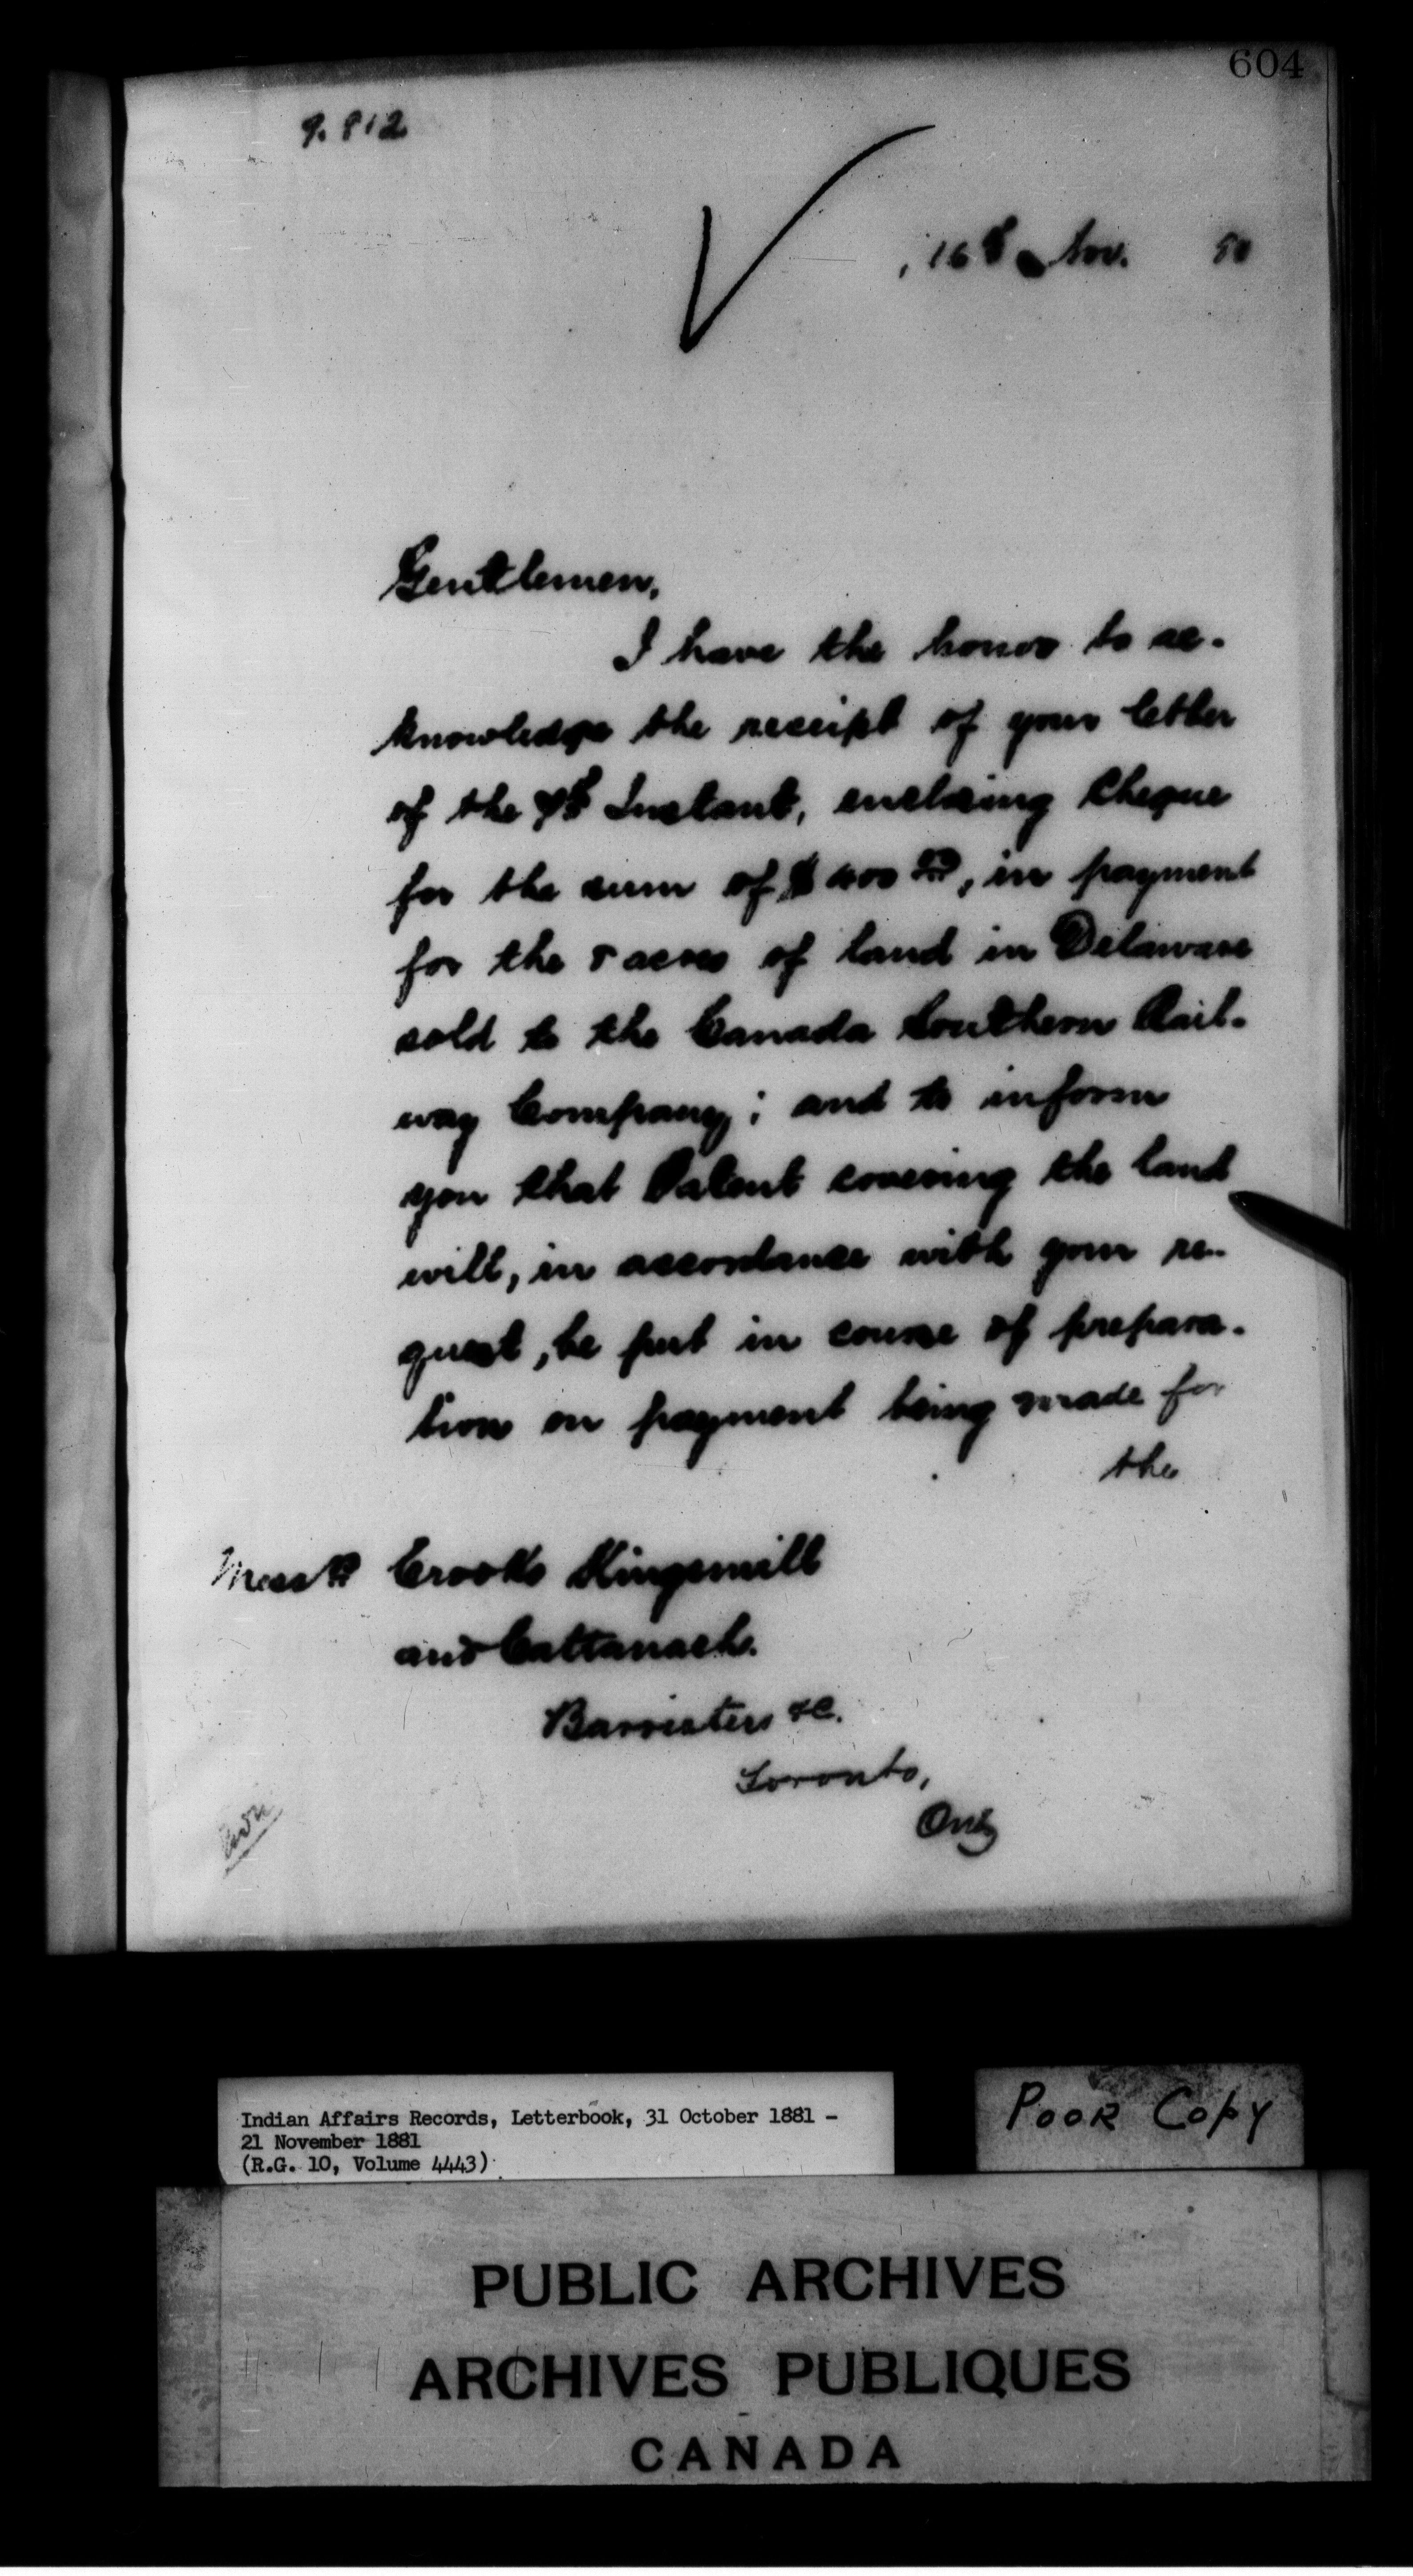 604
9.812
16th Nov. 
Gentlemen,
I have the honor to ac-
knowledge the receipt of your letter
of the Instant, enclosing Cheque
for the sum of $400 00, in payment
for the 5 acres of land in Delaware
sold to the Canada Southern Rail-
way Company; and to inform
you that Patent covering the land
will, in accordance with your re-
quest, be put in course of prepara-
tion on payment being made for
the
Messrs Crooks Kingsmill
and Cattanach.
Barristers &c.
Toronto,
Ont
Indian Affairs Records, Letterbook, 31 October 1881 -
21 November 1881
(R.G. 10, Volume 4443)
POOR COPY
PUBLIC ARCHIVES
ARCHIVES PUBLIQUES
CANADA